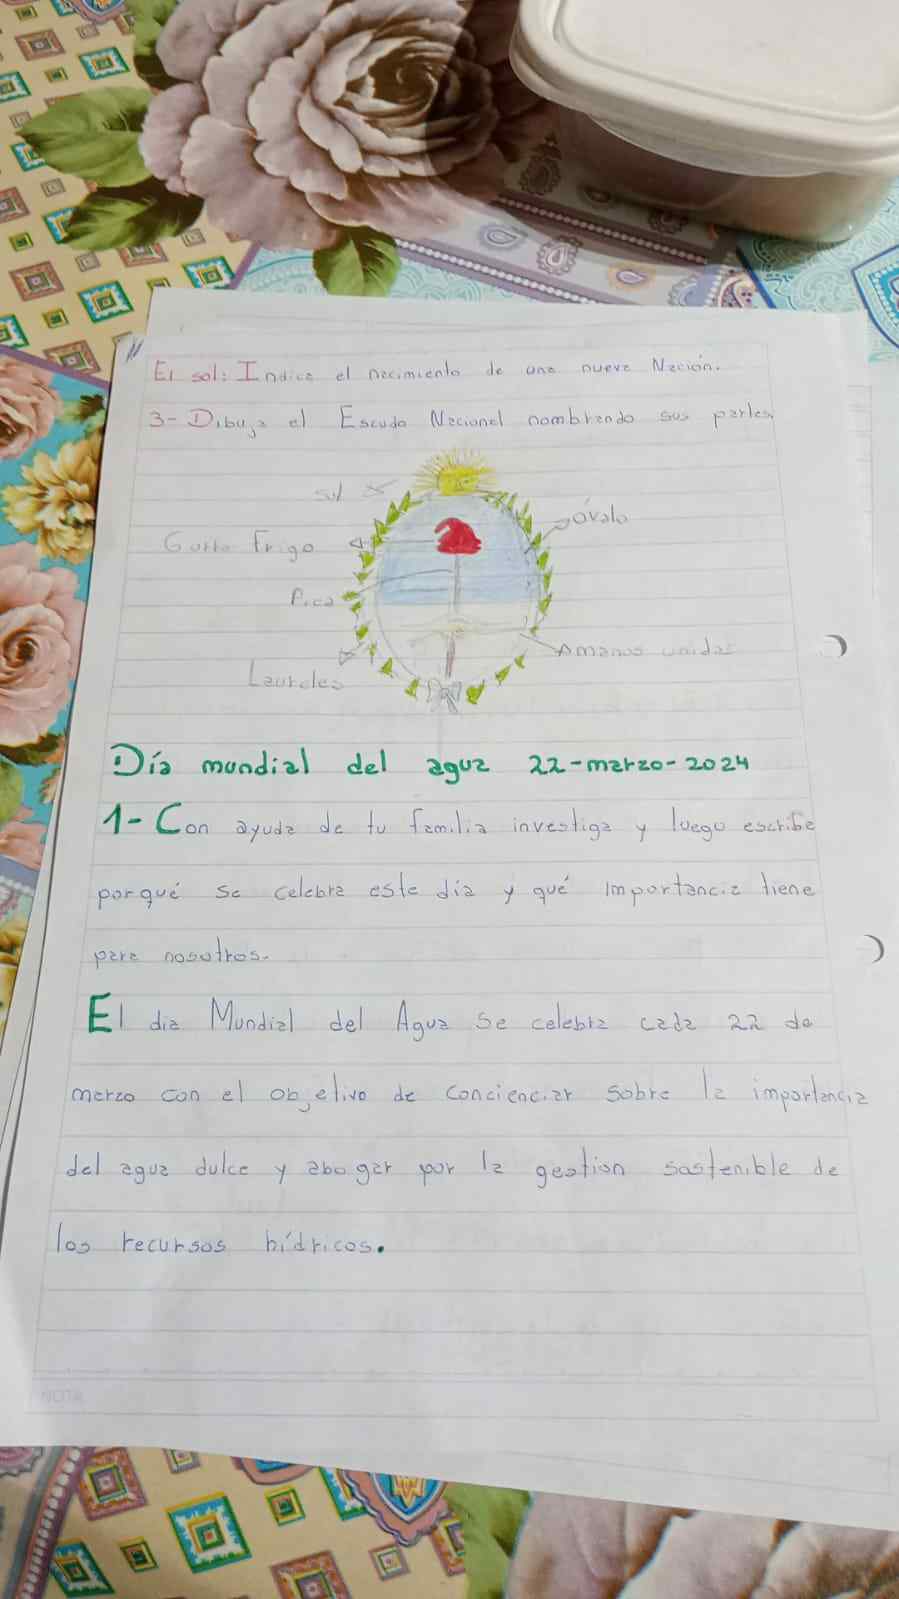 El sol: Indica el nacimiento de una nueva Nación.
3- Dibuja el Escudo Nacional nombrando sus partes.
Sol
óvalo
Gorro Frigo
Pica
manos unidas
Laureles
Día mundial del agua 22-marzo-2024
1- Con ayuda de tu familia investiga y luego escribe
porqué se celebra este día y qué importancia tiene
para nosotros.
El dia Mundial del Agua se celebra cada 22 de
marzo con el objetivo de concienciar sobre la importancia
del agua dulce y abogar por la gestion sostenible de
los recursos hídricos.
NOTA